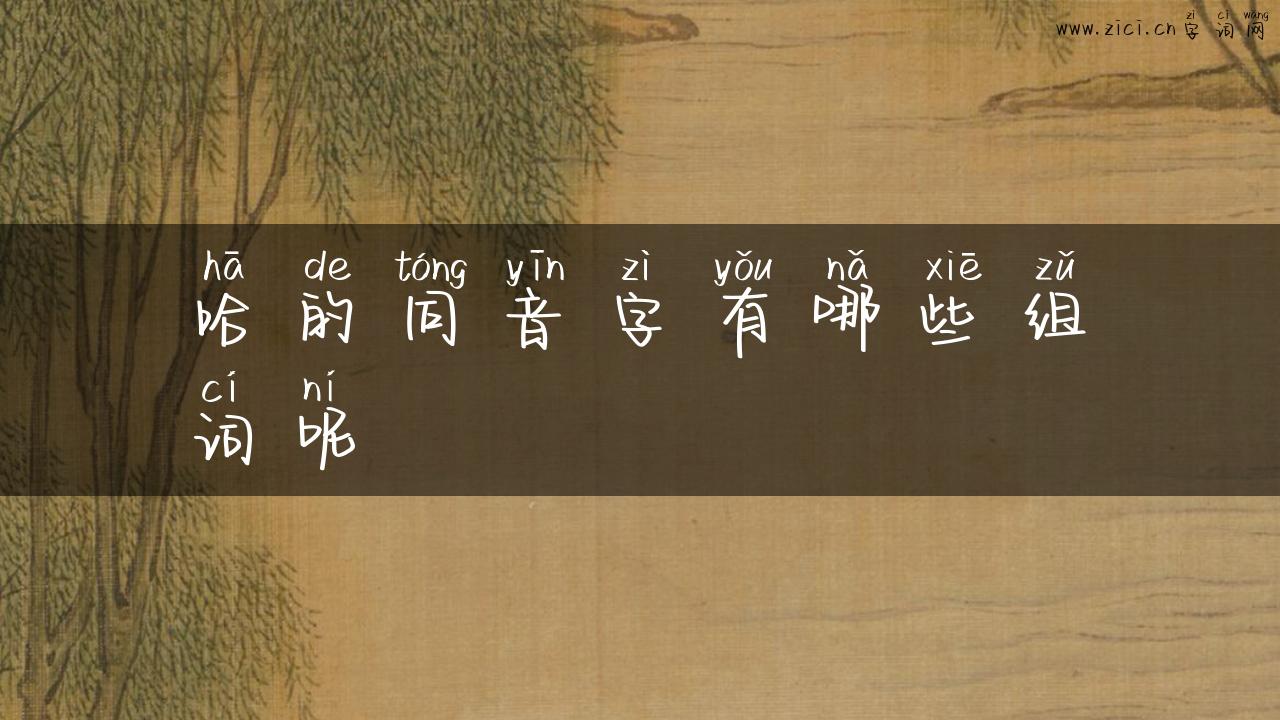 zì cí wǎng
www.zici.cn 字词网
hā de tóng yīn zì yǒu nǎ xiē zǔ
哈的同音字有哪些组
cí ní
词呢